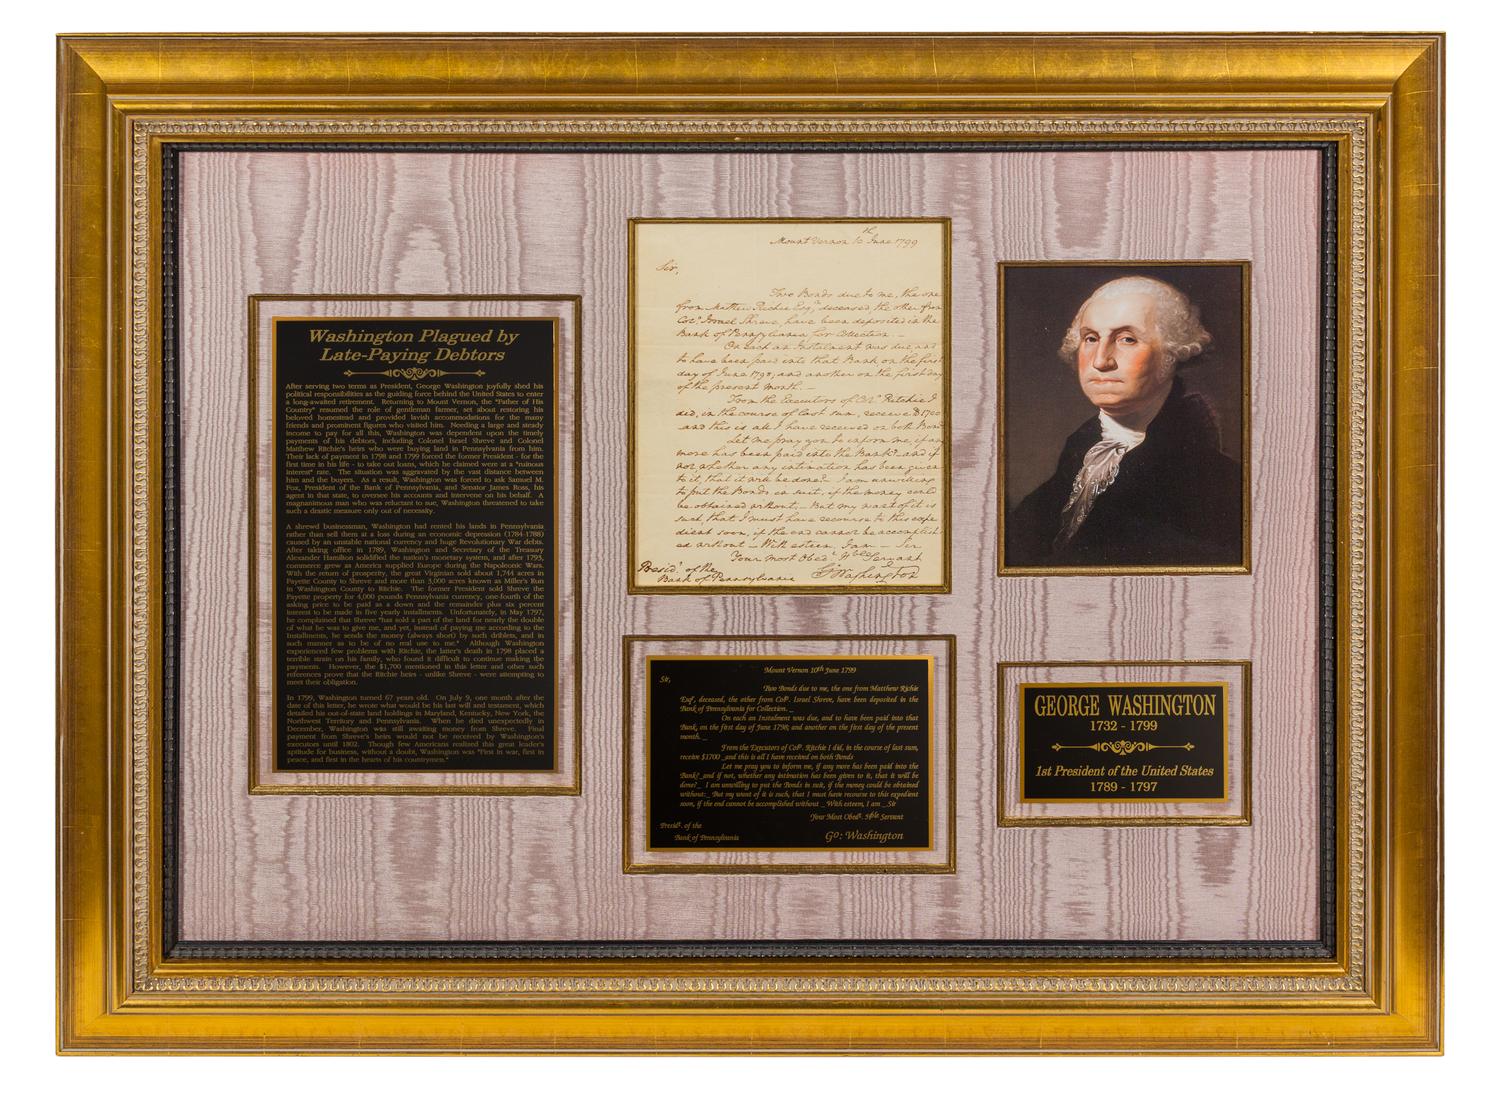 Washington Plagued by
Late-Paying Debtors
After serving two terms as President, George Washington joyfully shed his
political responsibilities as the guiding force behind the United States to enter
a long-awaited retirement. Returning to Mount Vernon, the "Father of His
Country" resumed the role of gentleman farmer, set about restoring his
beloved homestead and provided lavish accommodations for the many
friends and prominent figures who visited him. Needing a large and steady
income to pay for all this, Washington was dependent upon the timely
payments of his debtors, including Colonel Israel Shreve and Colonel
Matthew Ritchie's heirs who were buying land in Pennsylvania from him.
Their lack of payment in 1798 and 1799 forced the former President - for the
first time in his life - to take out loans, which he claimed were at a "ruinous
interest" rate. The situation was aggravated by the vast distance between
him and the buyers. As a result, Washington was forced to ask Samuel M.
Fox, President of the Bank of Pennsylvania, and Senator James Ross, his
agent in that state, to oversee his accounts and intervene on his behalf. A
magnanimous man who was reluctant to sue, Washington threatened to take
such a drastic measure only out of necessity.
A shrewd businessman, Washington had rented his lands in Pennsylvania
rather than sell them at a loss during an economic depression (1784-1788)
caused by an unstable national currency and huge Revolutionary War debts.
After taking office in 1789, Washington and Secretary of the Treasury
Alexander Hamilton solidified the nation's monetary system, and after 1793,
commerce grew as America supplied Europe during the Napoleonic Wars.
With the return of prosperity, the great Virginian sold about 1,744 acres in
Fayette County to Shreve and more than 3,000 acres known as Miller's Run
in Washington County to Ritchie. The former President sold Shreve the
Fayette property for 4,000 pounds Pennsylvania currency, one-fourth of the
asking price to be paid as a down and the remainder plus six percent
interest to be made in five yearly installments. Unfortunately, in May 1797,
he complained that Shreve "has sold a part of the land for nearly the double
of what he was to give me, and yet, instead of paying me according to the
Installments, he sends the money (always short) by such driblets, and in
such manner as to be of no real use to me." Although Washington
experienced few problems with Ritchie, the latter's death in 1798 placed a
terrible strain on his family, who found it difficult to continue making the
payments. However, the $1,700 mentioned in this letter and other such
references prove that the Ritchie heirs - unlike Shreve - were attempting to
meet their obligation.
In 1799, Washington turned 67 years old. On July 9, one month after the
date of this letter, he wrote what would be his last will and testament, which
detailed his out-of-state land holdings in Maryland, Kentucky, New York, the
Northwest Territory and Pennsylvania. When he died unexpectedly in
December, Washington was still awaiting money from Shreve. Final
payment from Shreve's heirs would not be received by Washington's
executors until 1802. Though few Americans realized this great leader's
aptitude for business, without a doubt, Washington was "First in war, first in
peace, and first in the hearts of his countrymen."
Mount Vernon 10th June 1799
Sir,
Two Bonds due to me, the one
from Mathew Richie Esqr deceased the other from
Colo. Israel Shreve, have been deposited in the
Bank of Pennsylvania for Collection. —
On each an Instalment was due, and
to have been paid into that Bank on the first
day of June 1798; and another on the first day
of the present month. —
From the Executors of Colo Ritchie I
did, in the course of last sum, receive $1700
and this is all I have received on both Bonds
Let me pray you to inform me, if any
more has been paid into the Bank? and if
not, whether any intimation has been given
to it, that it will be done? I am unwilling
to put the Bonds in suit, if the money could
be obtained without, — But my want of it is
such, that I must have recourse to this expe
dient soon, if the end cannot be accomplish
ed without — With esteem, I am — Sir
Your most Obedt Hble Servant
Presidt of the
Bank of Pennsylvania
Go: Washington
Mount Vernon 10th June 1799
Sir,
Two Bonds due to me, the one from Matthew Richie
Esqr, deceased, the other from Colo. Israel Shreve, have been deposited in the
Bank of Pennsylvania for Collection. _
On each an Instalment was due, and to have been paid into that
Bank, on the first day of June 1798; and another on the first day of the present
month. _
From the Executors of Colo. Ritchie I did, in the course of last sum,
receive $1700 _and this is all I have received on both Bonds
Let me pray you to inform me, if any more has been paid into the
Bank? _and if not, whether any intimation has been given to it, that it will be
done? _ I am unwilling to put the Bonds in suit, if the money could be obtained
without: _ But my want of it is such, that I must have recourse to this expedient
soon, if the end cannot be accomplished without _ With esteem, I am _ Sir
Your Most Obedt. Hble Servant
Presidt. of the
Bank of Pennsylvania
Go: Washington
GEORGE WASHINGTON
1732 - 1799
1st President of the United States
1789 - 1797